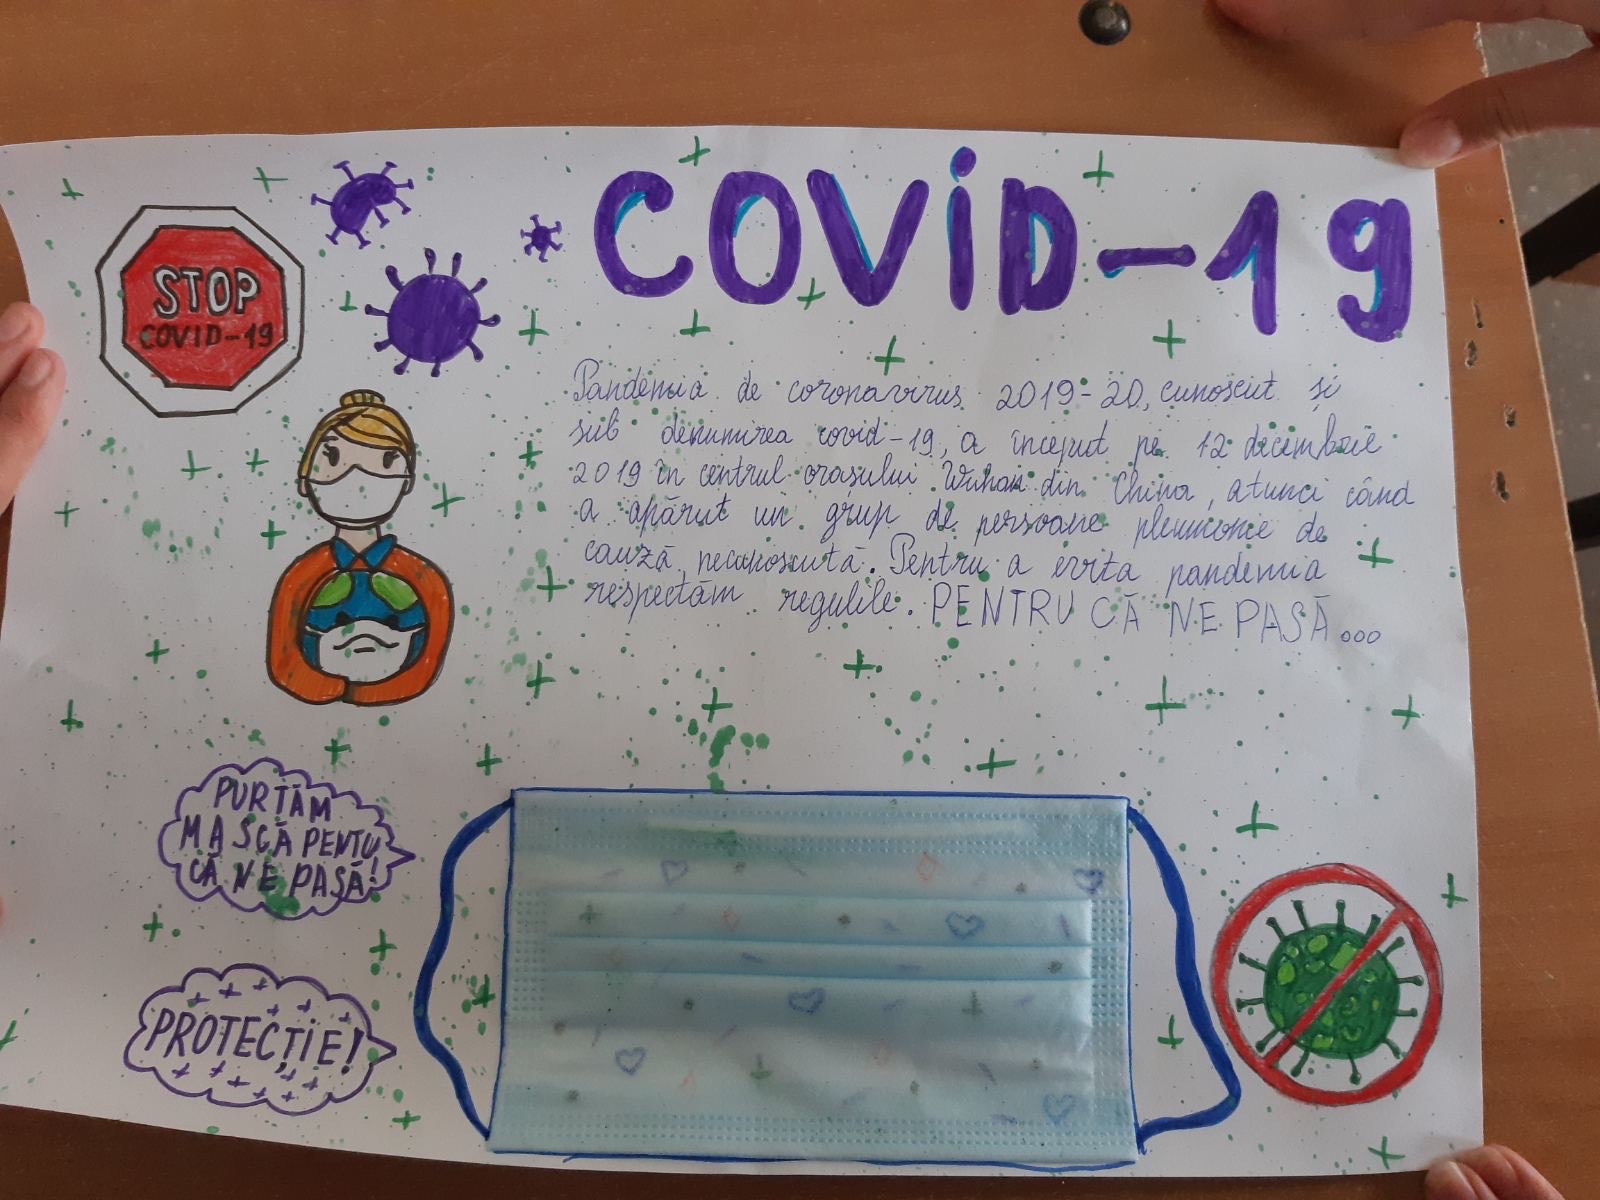 COVID-19
STOP
COVID-19
Pandemia de coronavirus 2019-20, cunoscut și
sub denumirea covid-19, a început pe 12 decembrie
2019 în centrul orașului Wuhan din China, atunci când
a apărut un grup de persoane pleumonie de
cauză necunoscută. Pentru a evita pandemia
respectăm regulile. PENTRU CĂ NE PASĂ...
PURTĂM
MASCĂ PENTU
CĂ NE PASĂ!
PROTECȚIE!